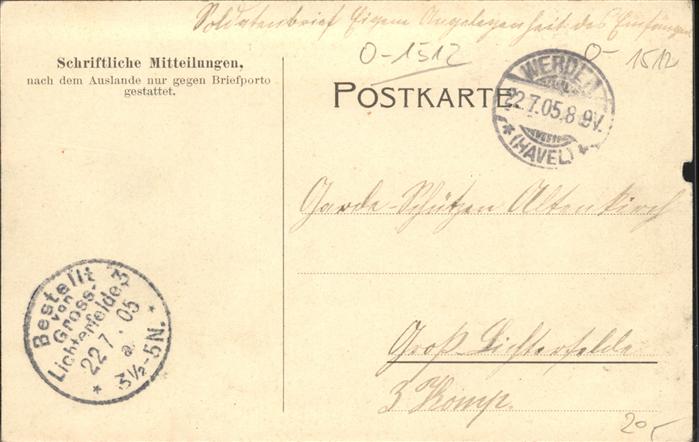 Soldatenbrief Eigene Angelegenheit des Empfängers
O-1512
O-1512
Schriftliche Mitteilungen,
nach dem Auslande nur gegen Briefporto
gestattet.
POSTKARTE
WERDER
22.7.05.8-9V.
* (HAVEL) *
Garde-Schützen Altenkirch
Bestellt
von
Gross-
Lichterfelde 3
22 7. 05
a.
* 3½-5N. *
Groß Lichterfelde
3 Komp.
20,-